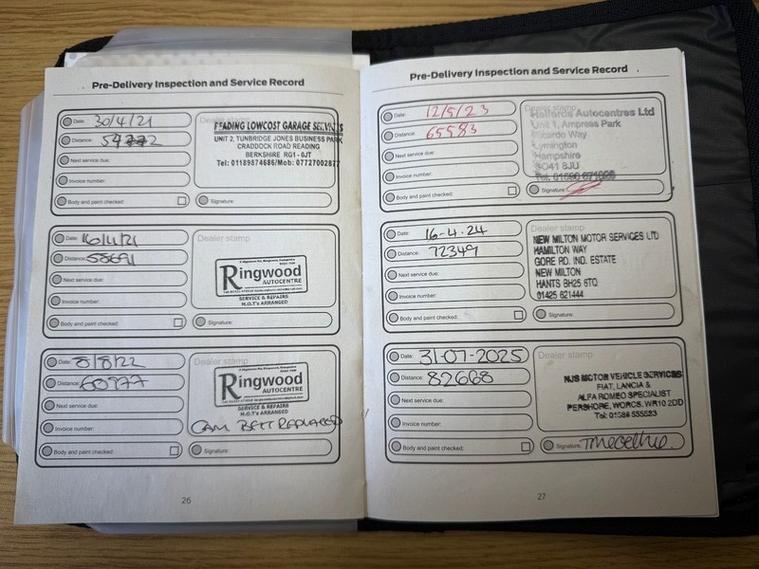 Pre-Delivery Inspection and Service Record
Date: 30/4/21
Distance:
Next service due:
Invoice number:
Body and paint checked:
Dealer stamp
READING LOWCOST GARAGE SERVICES
UNIT 2, TUNBRIDGE JONES BUSINESS PARK
CRADDOCK ROAD READING
BERKSHIRE RG1 - 0JT
Tel: 01189874686/Mob: 07727002877
Signature:
Date:
Distance: 58691
Next service due:
Invoice number:
Body and paint checked:
Dealer stamp
Ringwood
AUTOCENTRE
SERVICE & REPAIRS
M.O.T's ARRANGED
Signature:
Date: 8/8/22
Distance: 60977
Next service due:
Invoice number:
Body and paint checked:
Dealer stamp
Ringwood
AUTOCENTRE
SERVICE & REPAIRS
M.O.T's ARRANGED
CAM BELT REPLACED
Signature:
26
Pre-Delivery Inspection and Service Record
Date: 12/5/23
Distance: 65583
Next service due:
Invoice number:
Body and paint checked:
Dealer stamp
Halfords Autocentres Ltd
Unit 1, Ampress Park
Way
Lymington
Hampshire
SO41 8JU
Signature:
Date: 16-4-24
Distance: 72349
Next service due:
Invoice number:
Body and paint checked:
Dealer stamp
NEW MILTON MOTOR SERVICES LTD
HAMILTON WAY
GORE RD. IND. ESTATE
NEW MILTON
HANTS BH25 6TQ
01425 621444
Signature:
Date: 31-07-2025
Distance: 82668
Next service due:
Invoice number:
Body and paint checked:
Dealer stamp
NJS MOTOR VEHICLE SERVICES
FIAT, LANCIA &
ALFA ROMEO SPECIALIST
PERSHORE, WORCS. WR10 2DD
Tel: 01386 555523
Signature:
27